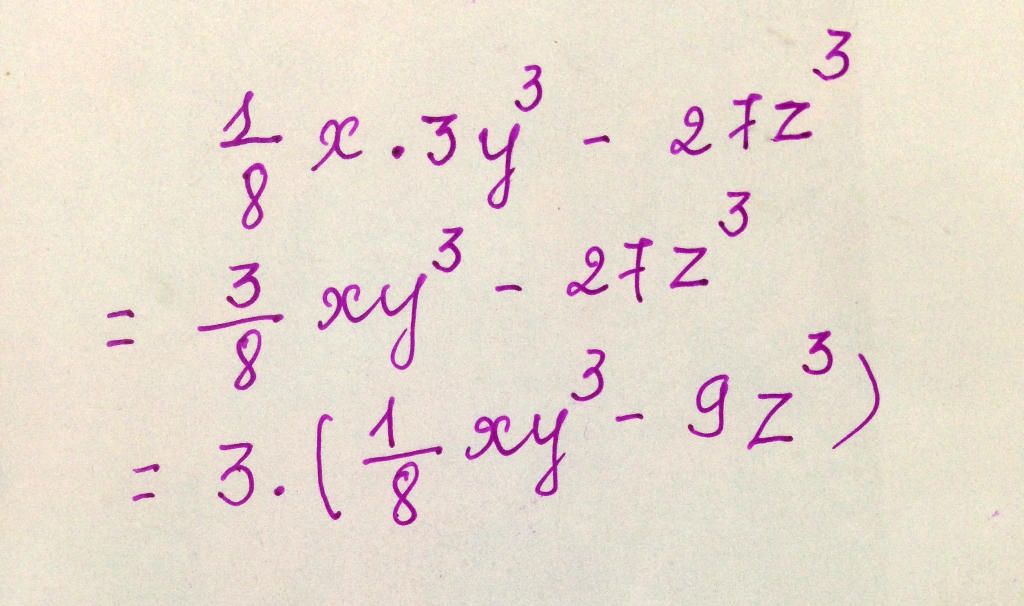 1/8 x . 3y³ - 27z³
= 3/8 xy³ - 27z³
= 3. (1/8 xy³ - 9z³)